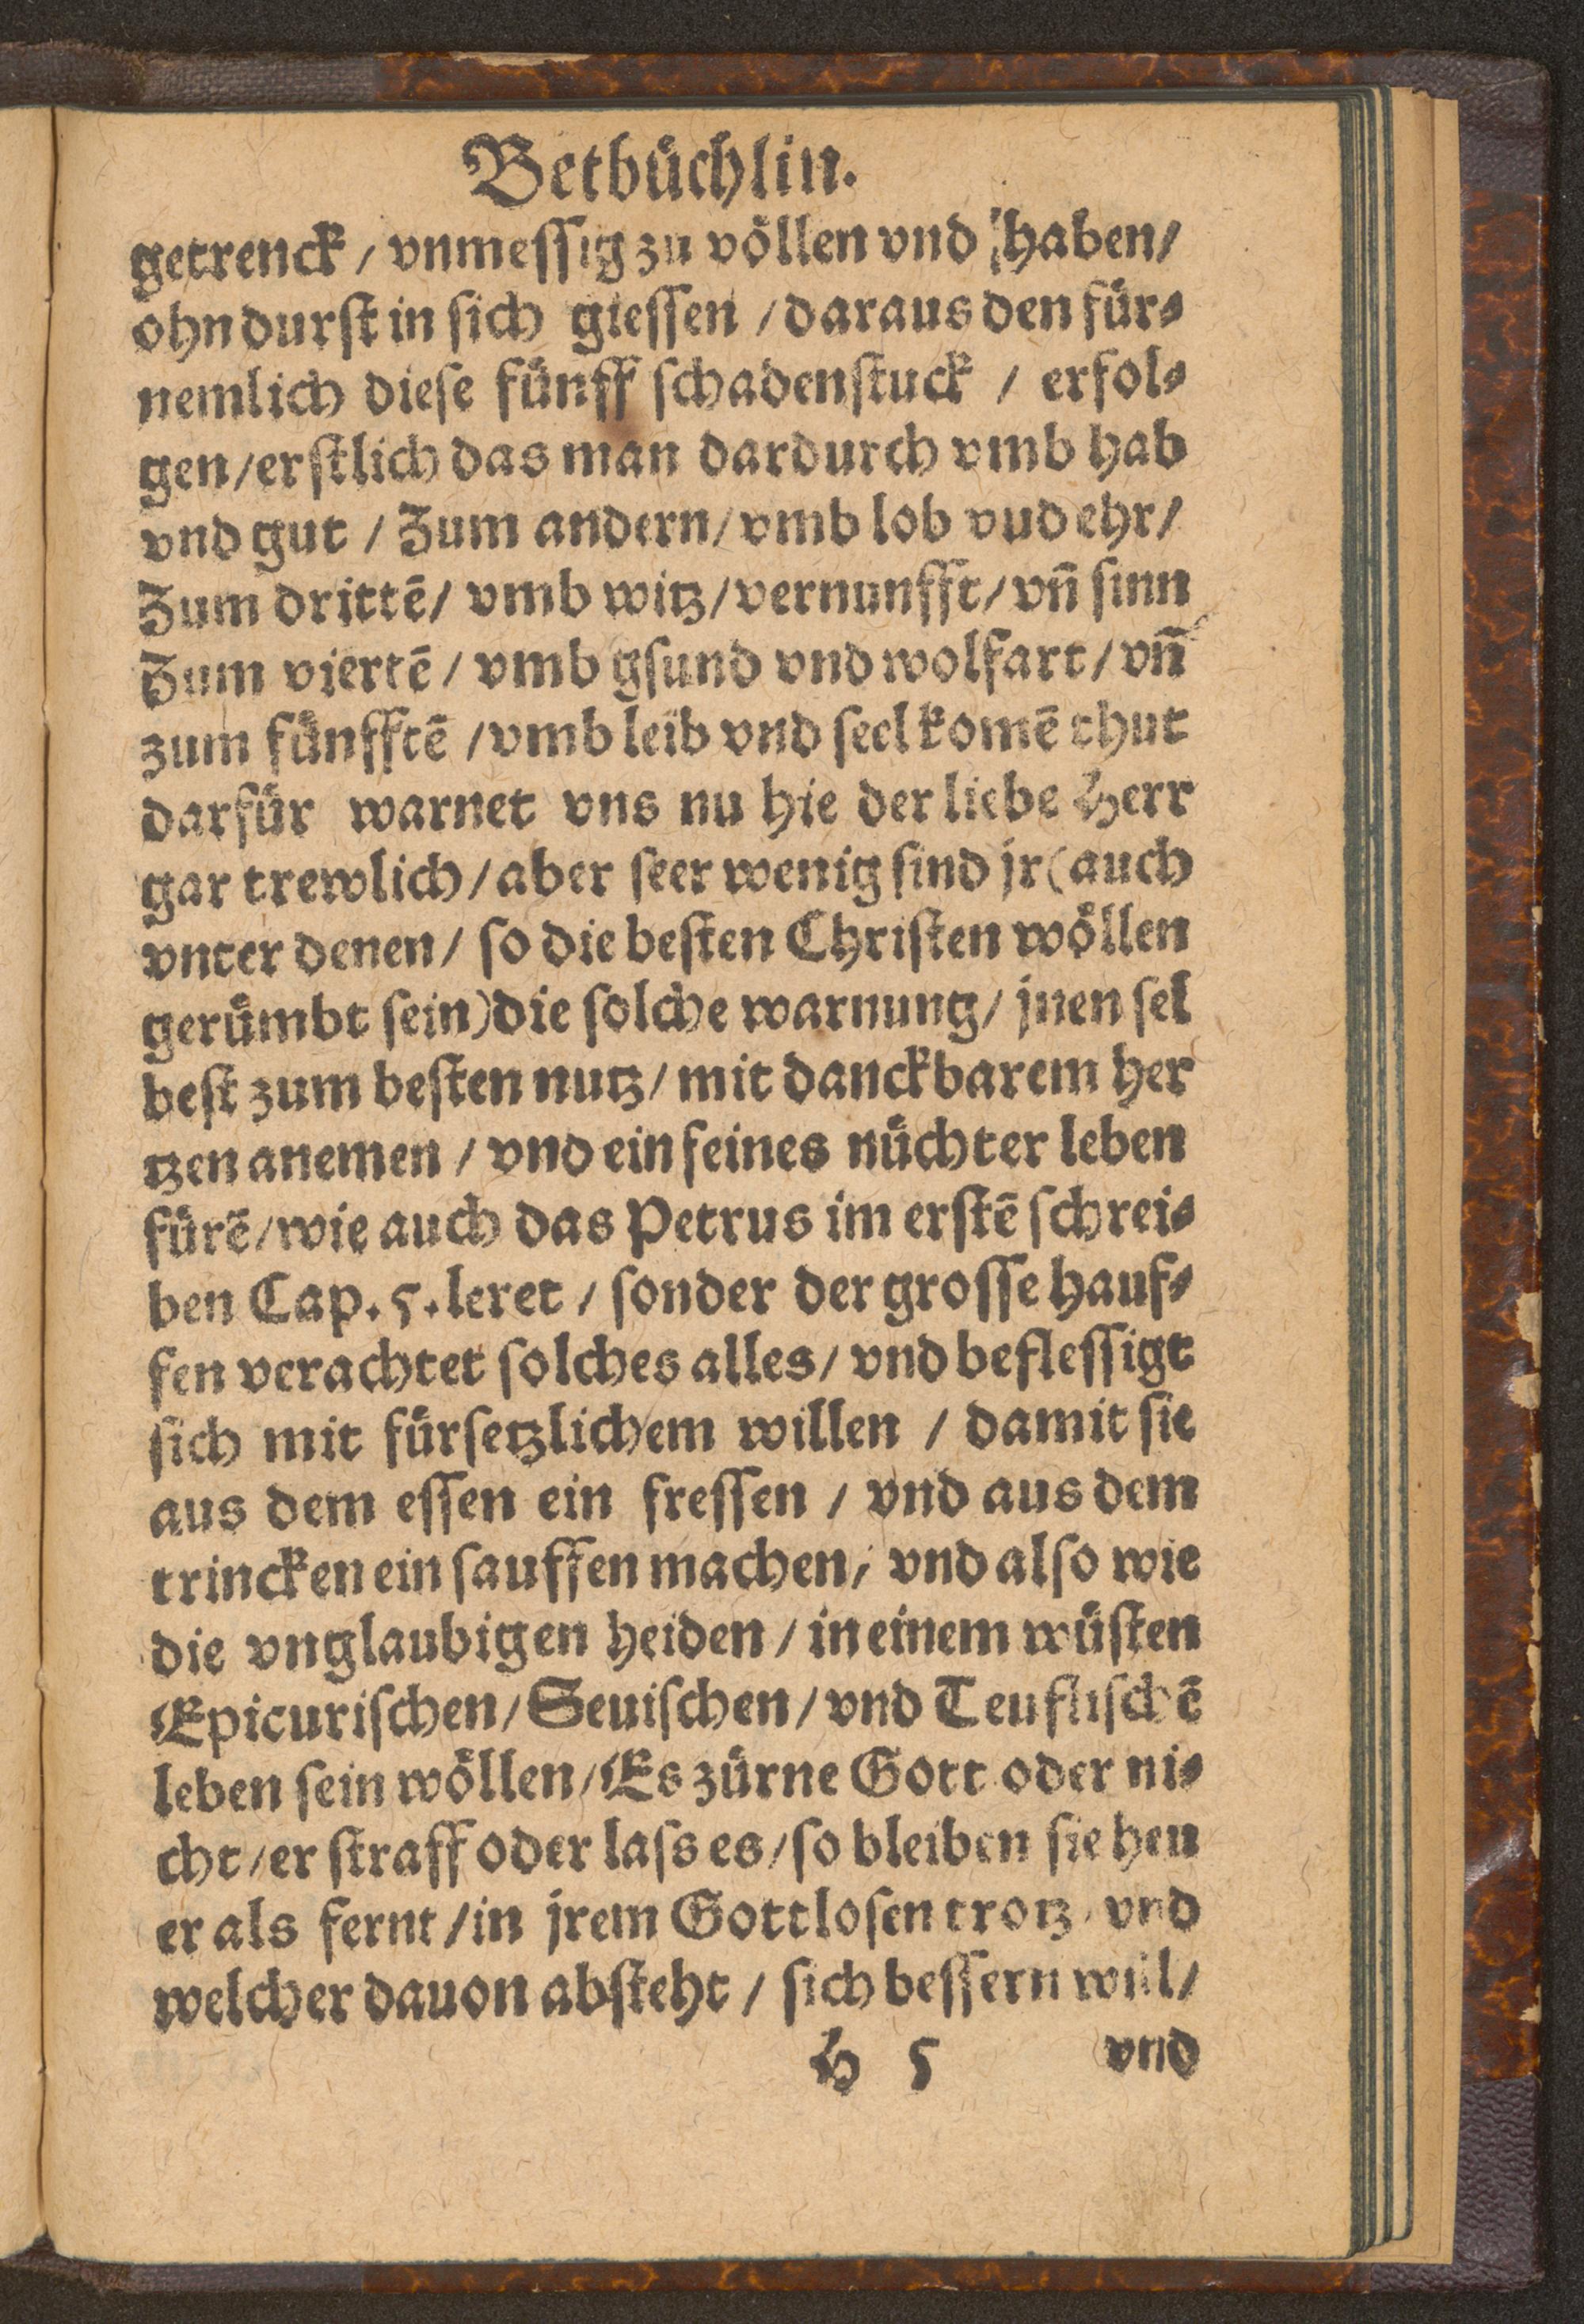 Betbüchlin.
getrenck / vnmeſſig zu völlen vnd haben /
ohn durſt in ſich gieſſen / daraus den für⸗
nemlich dieſe fünff ſchadenſtuck / erfol⸗
gen / erſtlich das man dardurch vmb hab
vnd gut / Zum andern / vmb lob vud ehr /
Zum drittē / vmb witz / vernunfft / vn̄ ſinn
Zum viertē / vmb gſund vnd wolfart / vn̄
zum fünfftē / vmb leib vnd ſeel komē thut
darfür warnet vns nu hie der liebe Herr
gar trewlich / aber ſeer wenig ſind jr (auch
vnter denen / ſo die beſten Chriſten wöllen
gerümbt ſein) die ſolche warnung / jnen ſel
beſt zum beſten nutz / mit danckbarem her
tzen anemen / vnd ein feines nüchter leben
fürē / wie auch das Petrus im erſtē ſchrei⸗
ben Cap. 5. leret / ſonder der groſſe hauf⸗
fen verachtet ſolches alles / vnd befleſſigt
ſich mit fürſetzlichem willen / damit ſie
aus dem eſſen ein freſſen / vnd aus dem
trincken ein ſauffen machen / vnd alſo wie
die vnglaubigen heiden / in einem wüſten
Epicuriſchen / Seuiſchen / vnd Teufliſchē
leben ſein wöllen / Es zürne Gott oder ni⸗
cht / er ſtraff oder laſs es / ſo bleiben ſie heu
er als fernt / in jrem Gottloſen trotz / vnd
welcher dauon abſteht / ſich beſſern will /
H 5 vnd